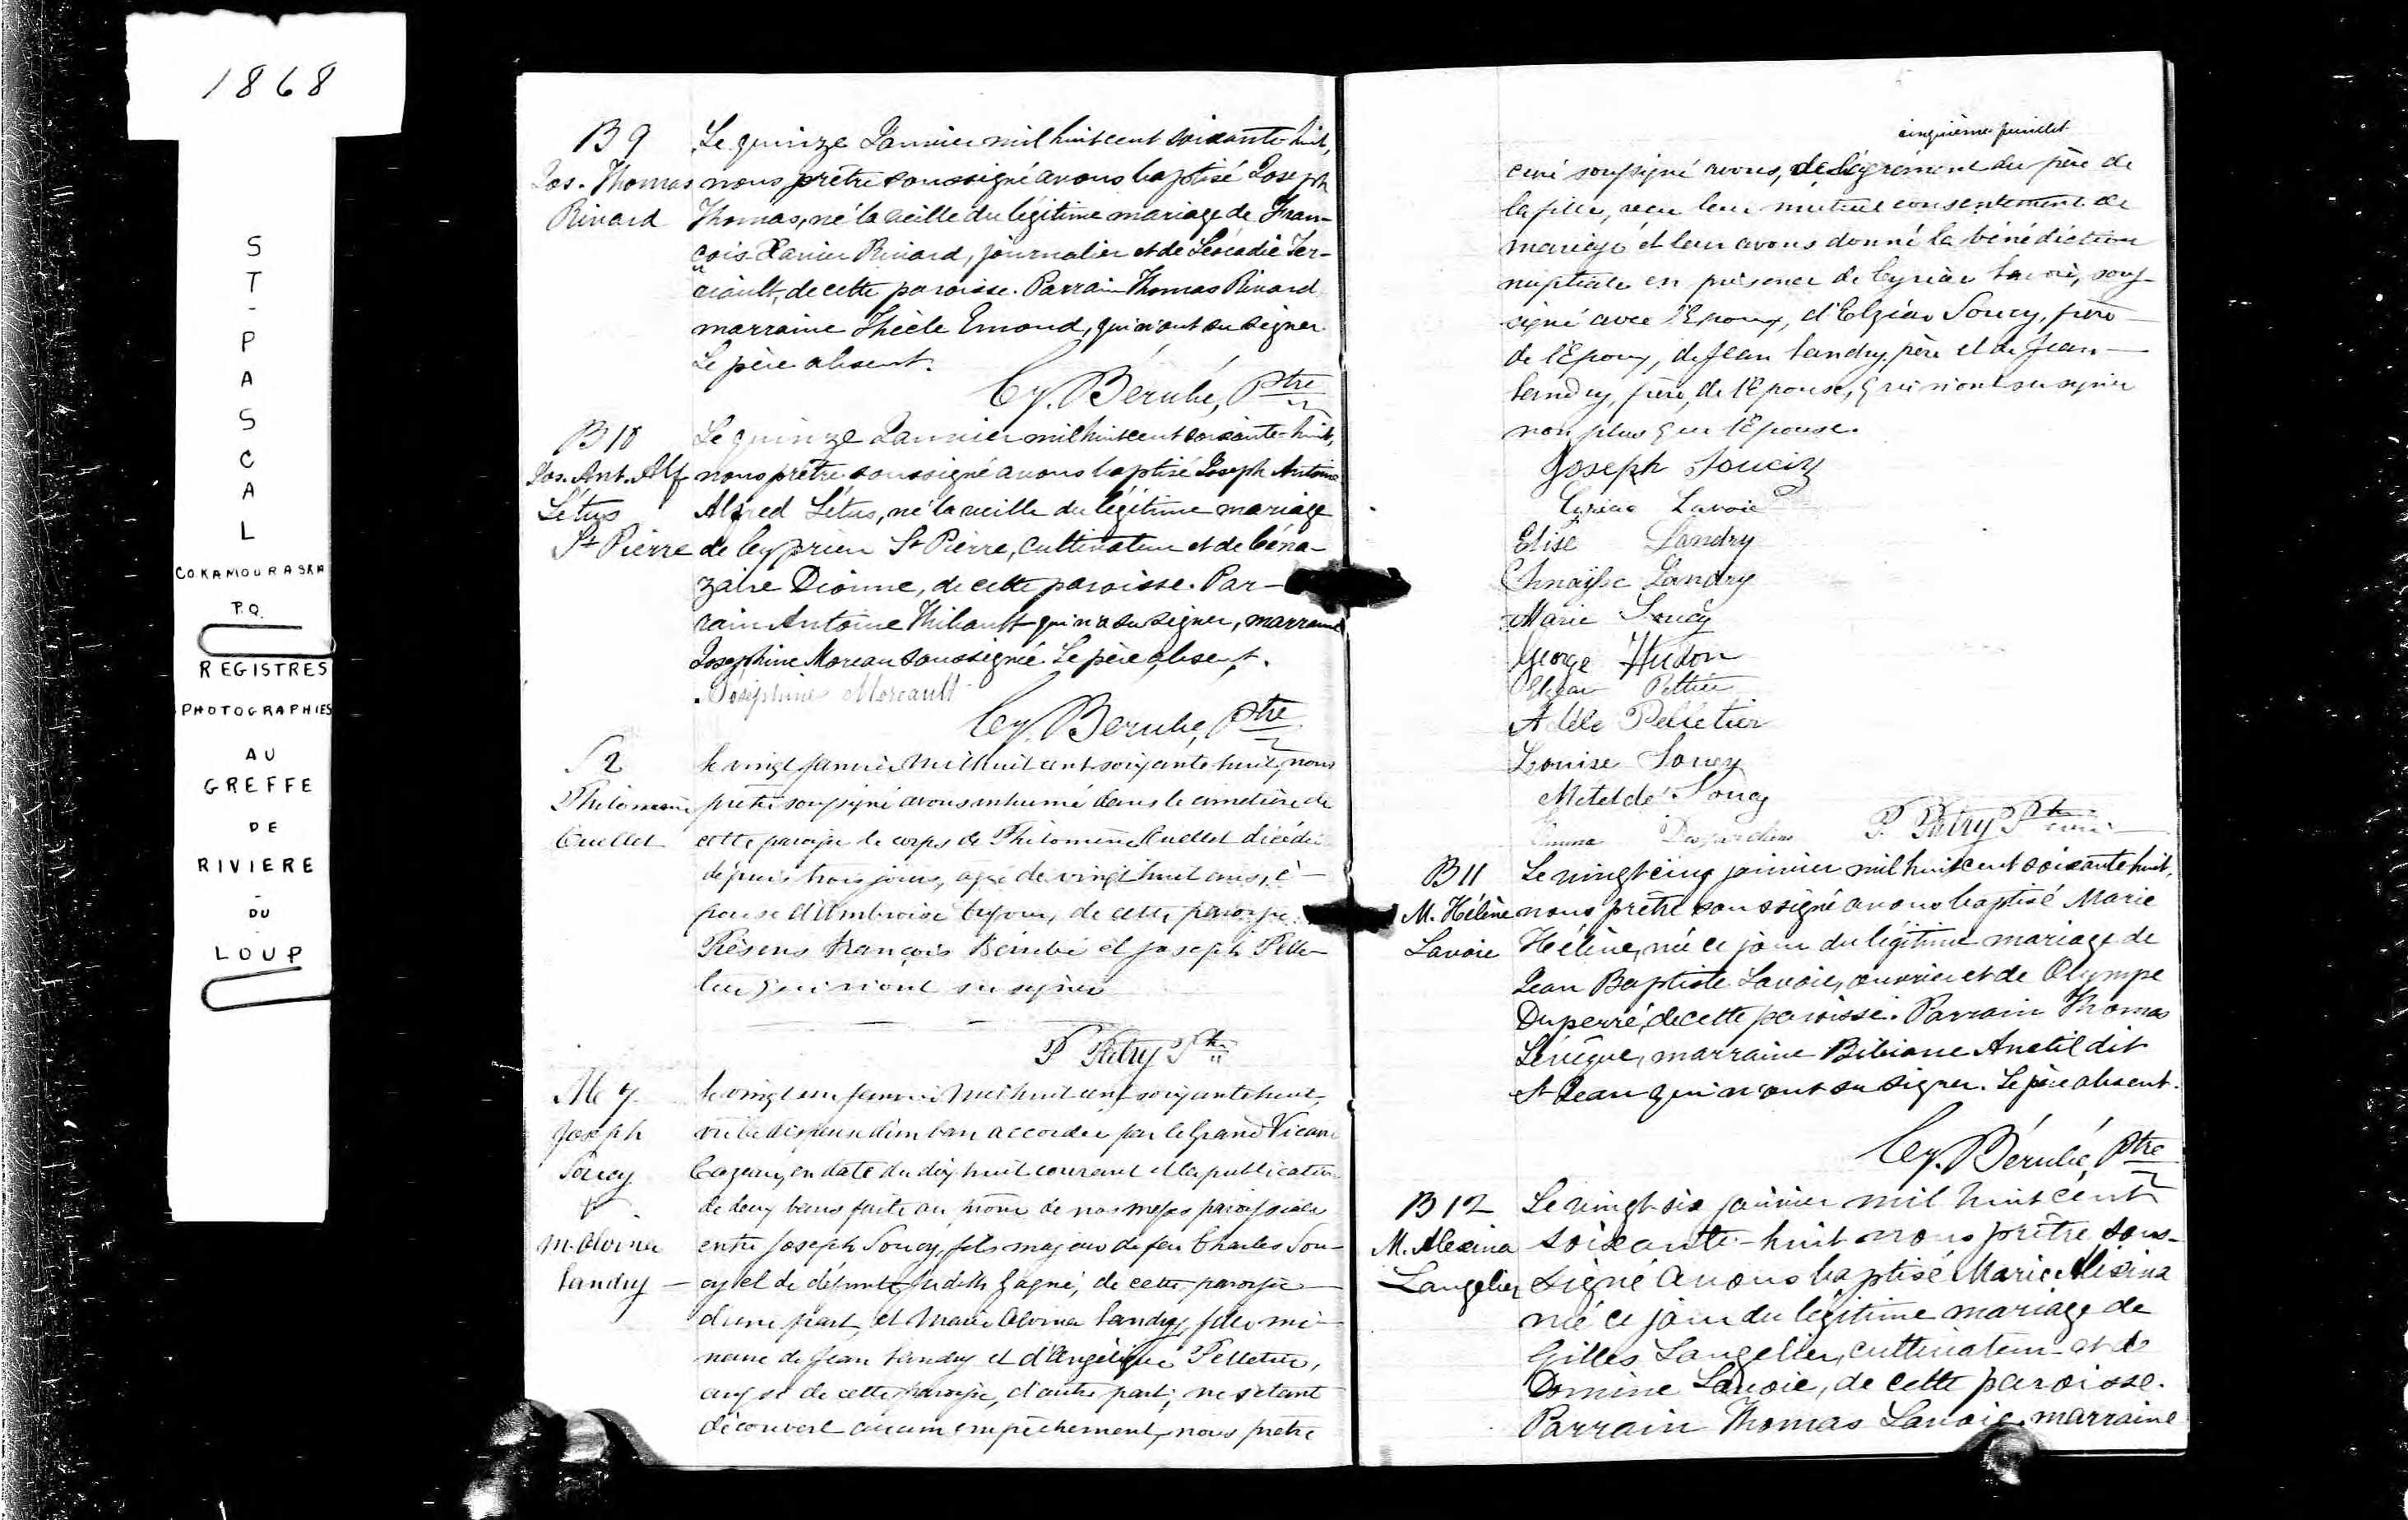 1868
ST-PASCAL
CO. KAMOURASKA
P.Q.
REGISTRES
PHOTOGRAPHIES
AU
GREFFE
DE
RIVIERE
-
DU
-
LOUP
B 9
Jos. Thomas
Rivard
Le quinze Janvier mil huit cent soixante-huit,
nous prêtre soussigné avons baptisé Joseph
Thomas, né la veille du légitime mariage de Fran-
çois Xavier Rivard, journalier et de Léocadie Ter-
riault, de cette paroisse. Parrain Thomas Rivard
marraine Thècle Emond, qui n'ont su signer
Le père absent.
Cy. Bérubé, Ptre
B 10
Jos. Ant. Alf
Létus
St Pierre
Le quinze Janvier mil huit cent soixante-huit,
nous prêtre soussigné avons baptisé Joseph Antoine
Alfred Létus, né la veille du légitime mariage
de Cyprien St Pierre, cultivateur et de Céna-
zaire Dionne, de cette paroisse. Par-
rain Antoine Thibault qui n'a su signer, marraine
Josephine Moreau soussignée. Le père absent.
Joséphine Moreault
Cy. Berube, Ptre
S 2
Philomène
Ouellet
Le vingt janvier mil huit cent soixante huit, nous
prêtre soussigné avons inhumé dans le cimetière de
cette paroisse le corps de Philomène Ouellet décédée
depuis trois jours, agée de vingt huit ans, é-
pouse d'Ambroise, de cette paroisse.
Présens François Bérubé et Joseph Pelle-
tier qui n'ont su signer
P Patry Ptre
M
Joseph
Soucy
&
M. Alvina
Landry
Le vingt un janvier mil huit cent soixante huit,
vu la dispense d'un ban accordée par le Grand Vicaire
Cazeau, en date du dix huit courant et la publication
de deux bans faite au prône de nos messes paroissiales
entre Joseph Soucy, fils majeur de feu Charles Sou-
cy et de défunte Judith Gagné, de cette paroisse
d'une part, et Marie Alvina Landry, fille mi-
neure de Jean Landry et d'Angélique Pelletier,
aussi de cette paroisse, d'autre part; ne s'étant
découvert aucun empêchement, nous prêtre
cinquième feuillet
curé soussigné avons, de l'agrément du père de
la fille, reçu leur mutuel consentement de
mariage et leur avons donné la bénédiction
nuptiale en présence de Cyriac Lavoie, sous-
signé avec l'Epoux, d'Elzéar Soucy, frère
de l'Epoux, de Jean Landry, père et de Jean
Landry, frère, de l'Epouse, qui n'ont su signer
non plus que l'Epouse.
Joseph Soucis
Cyriac Lavoie
Elise Landry
Landry
Marie Soucy
George Hudon
Elzéar Peltier
Adèle Pelletier
Louise Soucy
Metelde Soucy
Emma Desjardins
P. Patry Ptre curé
B 11
M. Hélène
Lavoie
Le vingt cinq janvier mil huit cent soixante huit,
nous prêtre soussigné avons baptisé Marie
Hélène, née ce jour du légitime mariage de
Jean Baptiste Lavoie, ouvrier et de Olympe
Duperré, de cette paroisse. Parrain Thomas
Lévêque, marraine Bibiane Anctil dit
St Jean qui n'ont su signer. Le père absent.
Cy. Bérubé, Ptre
B 12
M. Alexina
Langelier
Le vingt-six janvier mil huit cent
soixante-huit nous prêtre sous-
signé avons baptisé Marie Alixina
née ce jour du légitime mariage de
Gilles Langelier, cultivateur et de
Domine Lavoie, de cette paroisse.
Parrain Thomas Lavoie, marraine